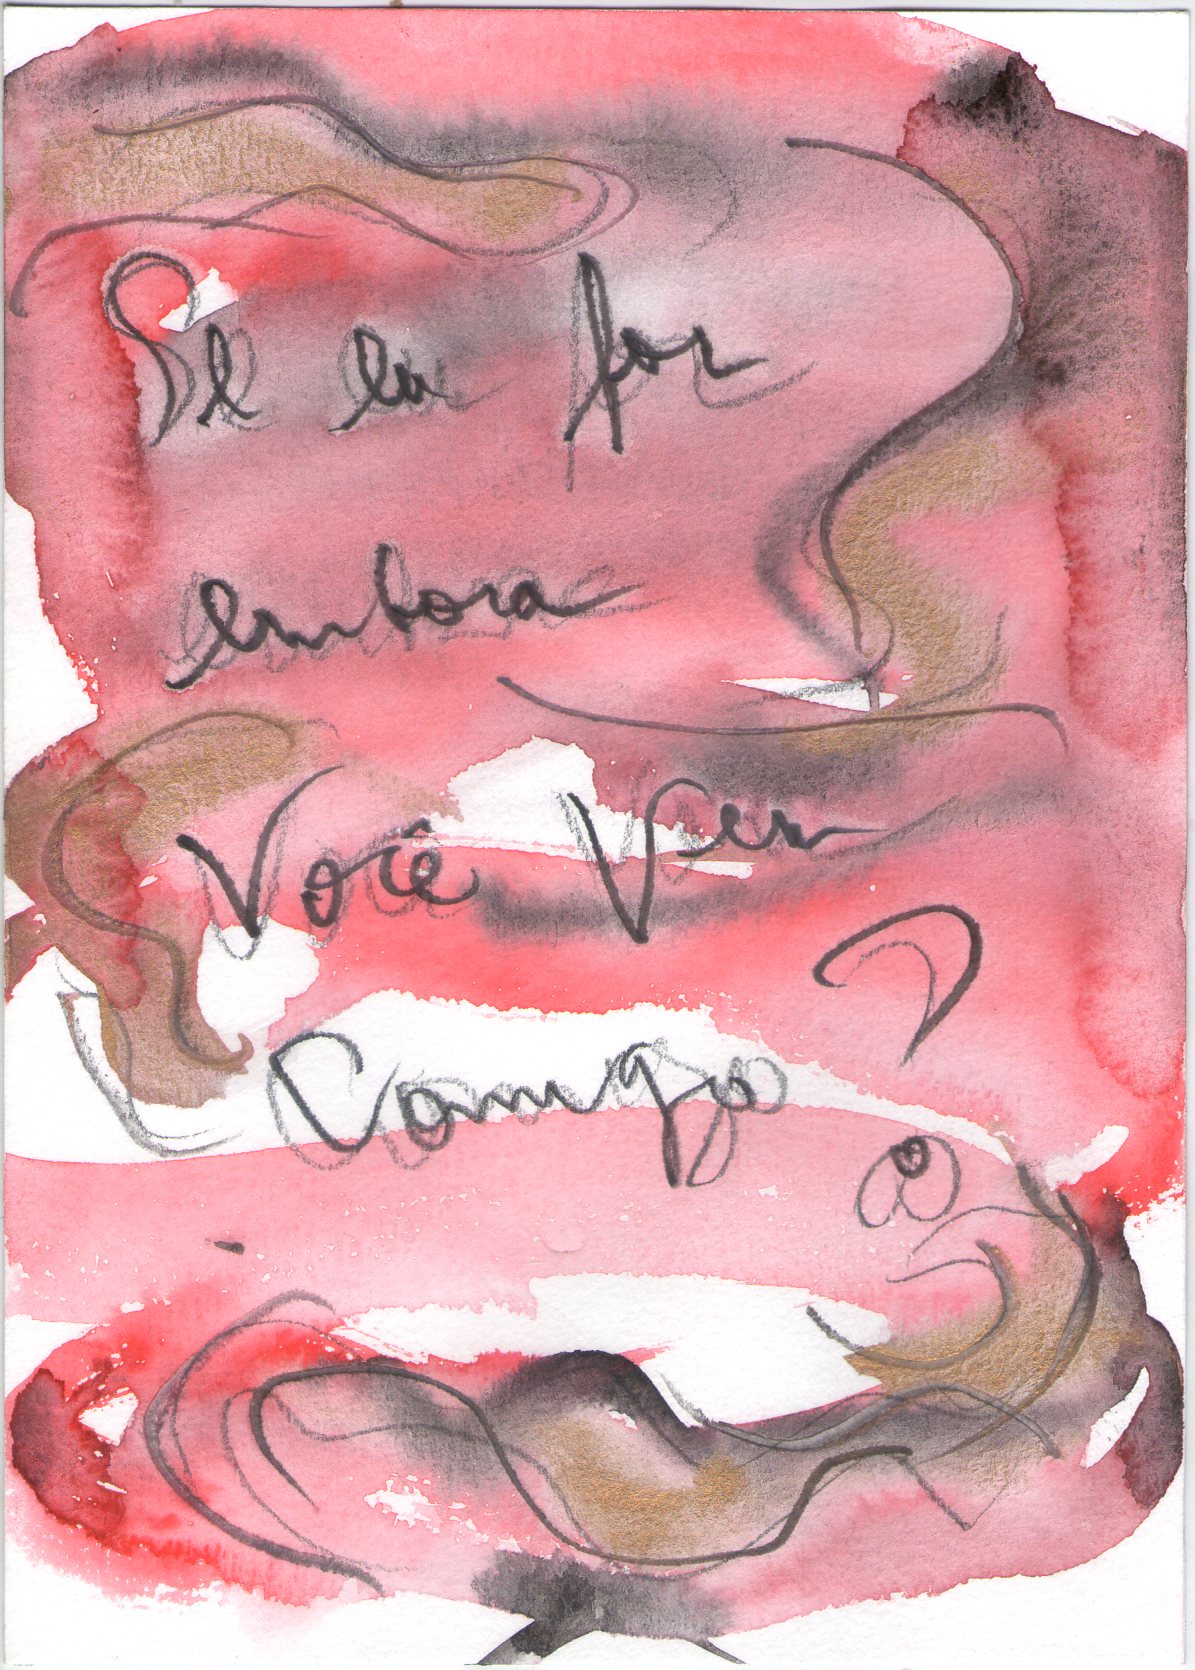 Se eu for
embora
Você vem
Comigo?